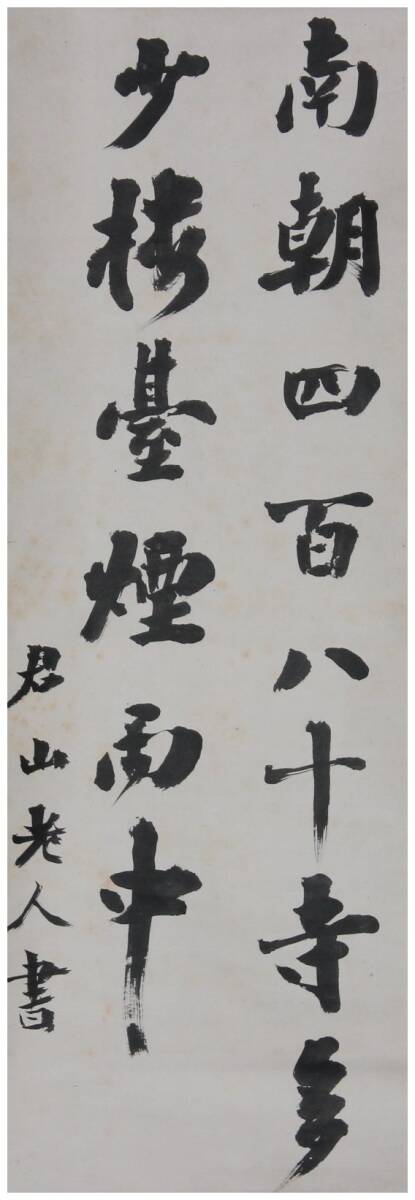 南朝四百八十寺多
少樓臺煙雨中
君山老人書